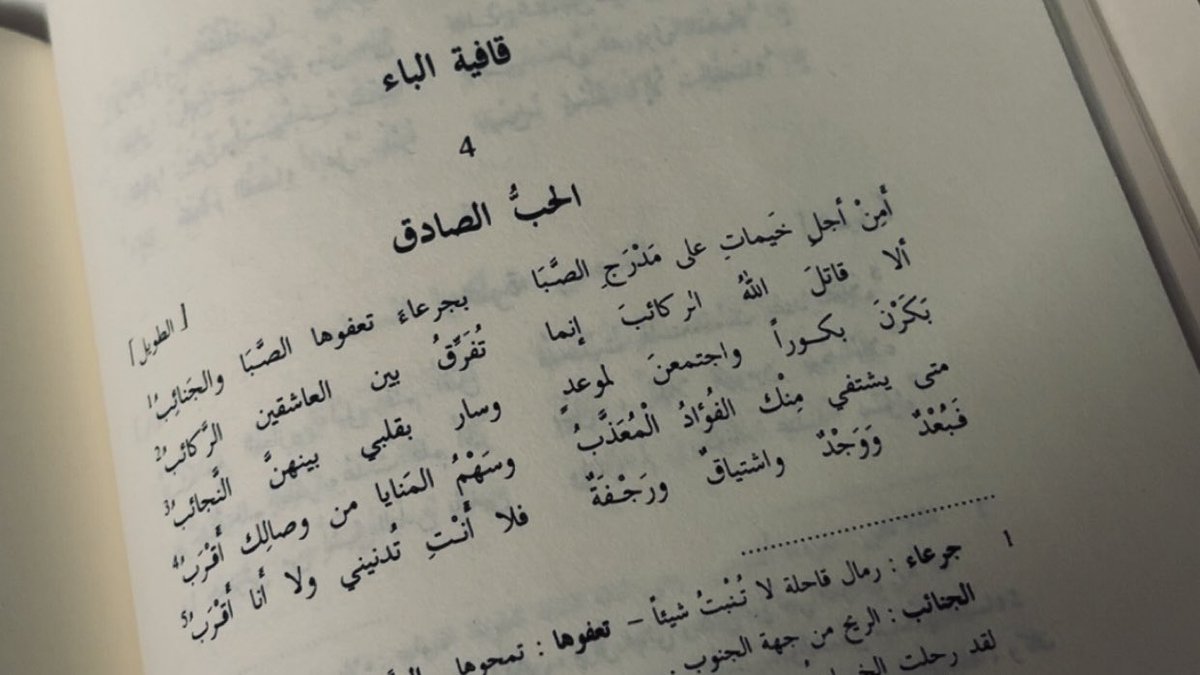 قافية الباء
4
الحبُّ الصادق
[الطويل]
أَمِنْ أجلِ خَيماتٍ على مَدْرَجِ الصَّبَا بجرعاءَ تعفوها الصَّبَا والجَنائِبُ¹
ألا قاتلَ اللهُ الركائبَ إنما تُفَرِّقُ بين العاشقين الرَّكائبُ²
بَكَرْنَ بكوراً واجتمعنَ لموعدٍ وسار بقلبي بينهنَّ النَّجائبُ³
متى يشتفي مِنْك الفُؤادُ الْمُعَذَّبُ وسَهْمُ المَنايا من وصالِك أَقْرَبُ⁴
فَبُعْدٌ وَوَجْدٌ واشتياقٌ ورَجْفَةٌ فلا أَنْتِ تُدنيني ولا أَنا أَقْرَبُ⁵
1 جرعاء : رمال قاحلة لا تُنْبتُ شيئاً – تعفوها : تمحوها
الجنائب : الريح من جهة الجنوب .
لقد رحلت